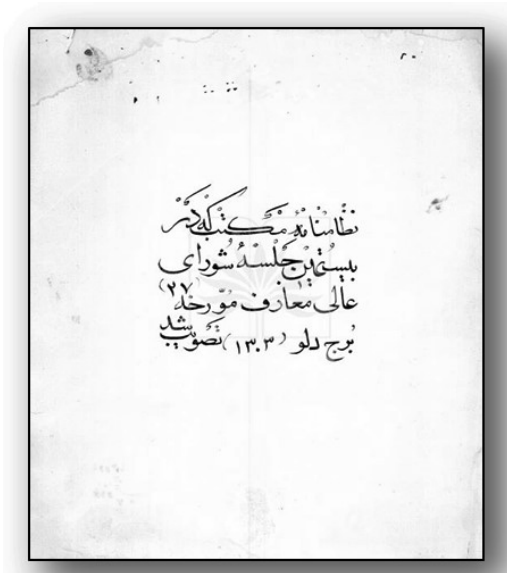 نظامنامهٔ مکتب که در
بیستمین جلسهٔ شورای
عالی معارف مورخهٔ (۲۷)
برج دلو (۱۳۰۳) تصویب شد